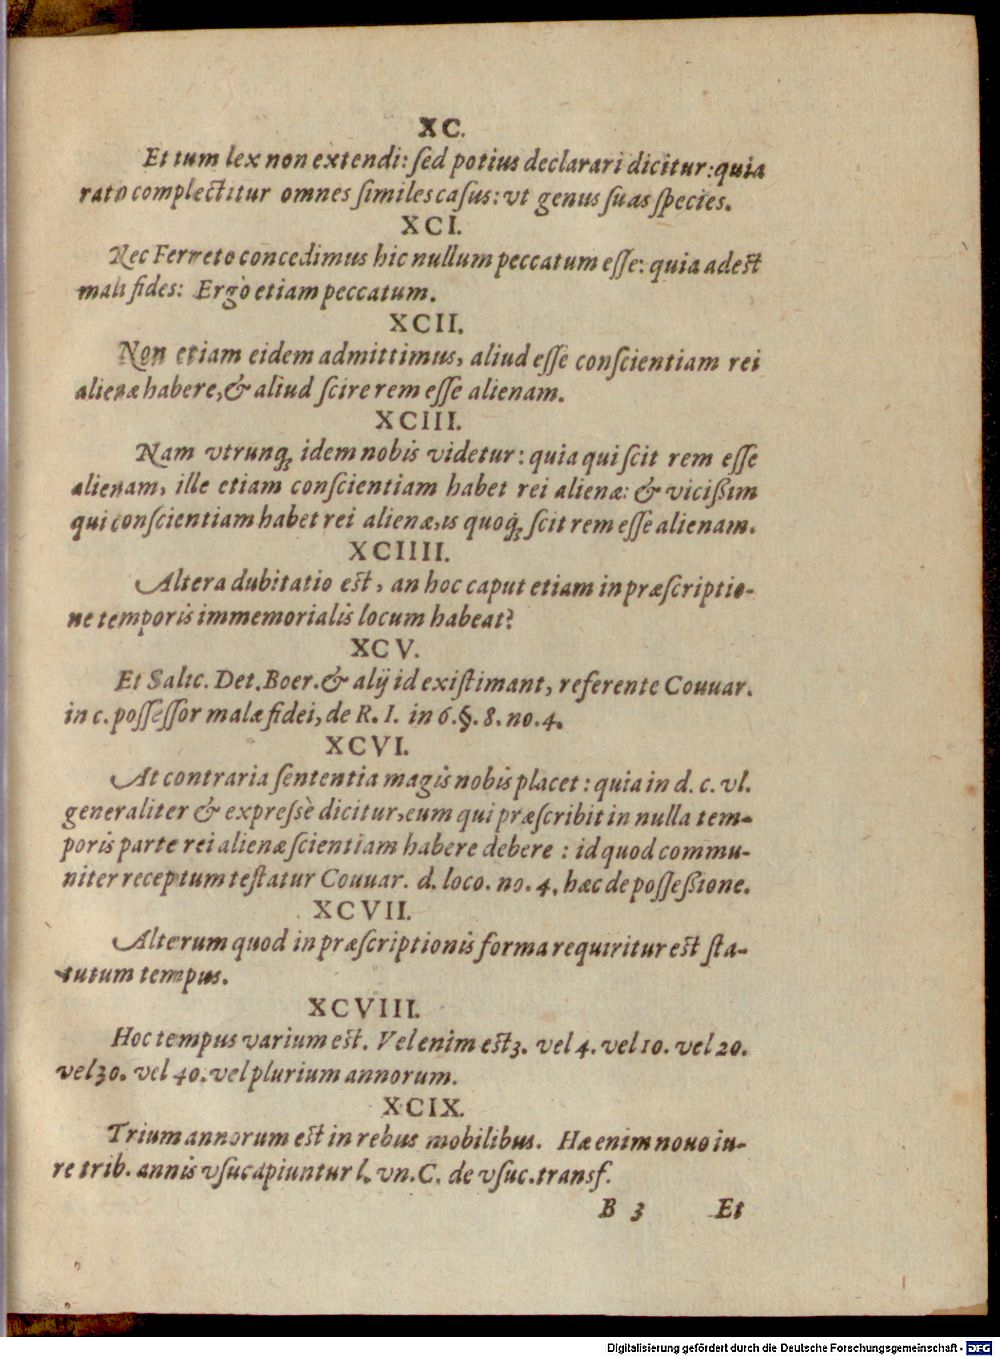 XC.
Et tum lex non extendi: ſed potius declarari dicitur: quia
ratio complectitur omnes ſimiles caſus: vt genus ſuas ſpecies.
XCI.
Nec Ferreto concedimus hic nullum peccatum eſſe: quia adest
mala fides: Ergò etiam peccatum.
XCII.
Non etiam eidem admittimus, aliud eſſe conſcientiam rei
alienæ habere, & aliud ſcire rem eſſe alienam.
XCIII.
Nam vtrunq; idem nobis videtur: quia qui ſcit rem eſſe
alienam, ille etiam conſcientiam habet rei alienæ: & vicißim
qui conſcientiam habet rei alienæ, is quoq; ſcit rem eſſe alienam.
XCIIII.
Altera dubitatio est, an hoc caput etiam in præſcriptio-
ne temporis immemorialis locum habeat?
XCV.
Et Salic. Det. Boer. & alij id exiſtimant, referente Couuar.
in c. poſſeſſor malæ fidei, de R. I. in 6. §. 8. no. 4.
XCVI.
At contraria ſententia magis nobis placet: quia in d. c. vl.
generaliter & expreſsè dicitur, eum qui præſcribit in nulla tem-
poris parte rei alienæ ſcientiam habere debere: id quod commu-
niter receptum teſtatur Couuar. d. loco. no. 4. hæc de poſſeßione.
XCVII.
Alterum quod in præſcriptionis forma requiritur est ſta-
tutum tempus.
XCVIII.
Hoc tempus varium est. Vel enim est 3. vel 4. vel 10. vel 20.
vel 30. vel 40. vel plurium annorum.
XCIX.
Trium annorum est in rebus mobilibus. Hæ enim nouo iu-
re trib. annis vſucapiuntur l. vn. C. de vſuc. transf.
B 3 Et
Digitalisierung gefördert durch die Deutsche Forschungsgemeinschaft - DFG